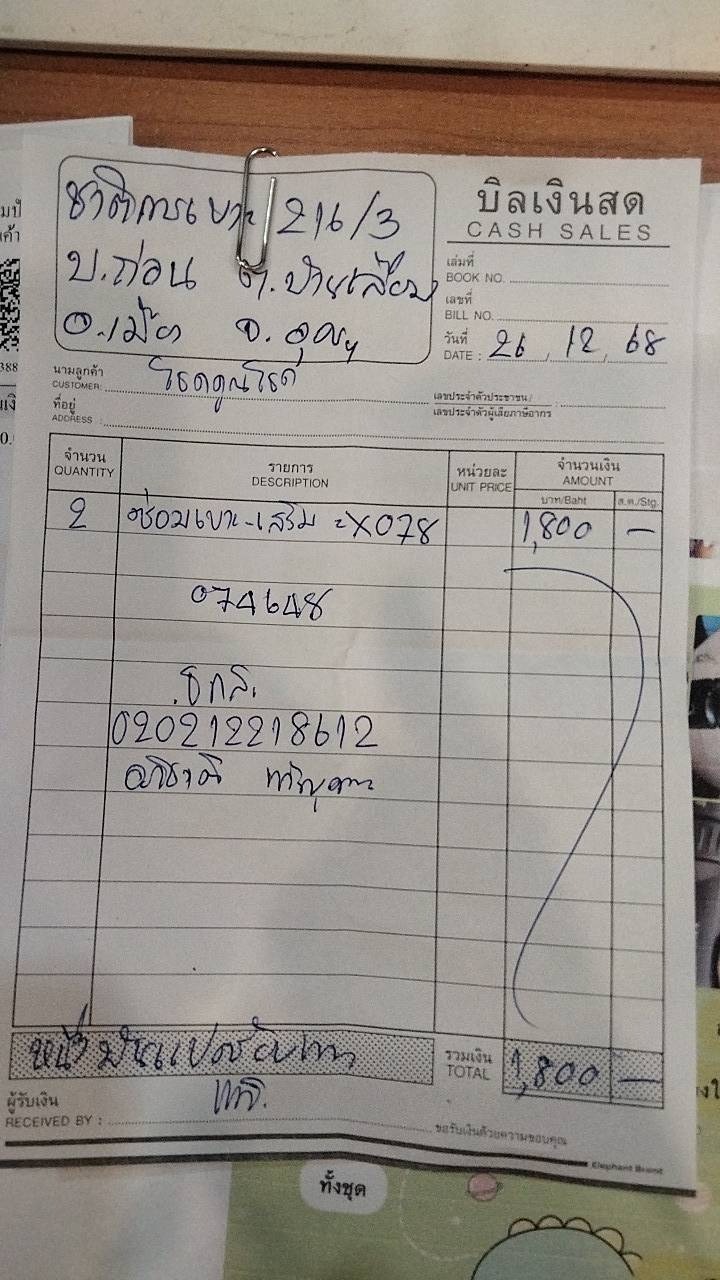 ชาติการเบาะ 216/3
บ.ถ่อน ต.บ้านเลื่อม
อ.เมือง จ.อุดร
บิลเงินสด
CASH SALES
เล่มที่
BOOK NO.
เลขที่
BILL NO.
วันที่
DATE : 26, 12, 68
นามลูกค้า
CUSTOMER:
เลขประจำตัวประชาชน / :
เลขประจำตัวผู้เสียภาษีอากร
ที่อยู่
ADDRESS :
จำนวน รายการ หน่วยละ จำนวนเงิน
QUANTITY DESCRIPTION UNIT PRICE AMOUNT
บาท/Baht ส.ต./Stg.
2 ซ่อมเบาะ-เสริม =X078 1,800 —
074648
ธกส.
020212218612
รวมเงิน
TOTAL 1,800 —
ผู้รับเงิน
RECEIVED BY :
ขอรับเงินด้วยความขอบคุณ
Elephant Brand
ทั้งชุด